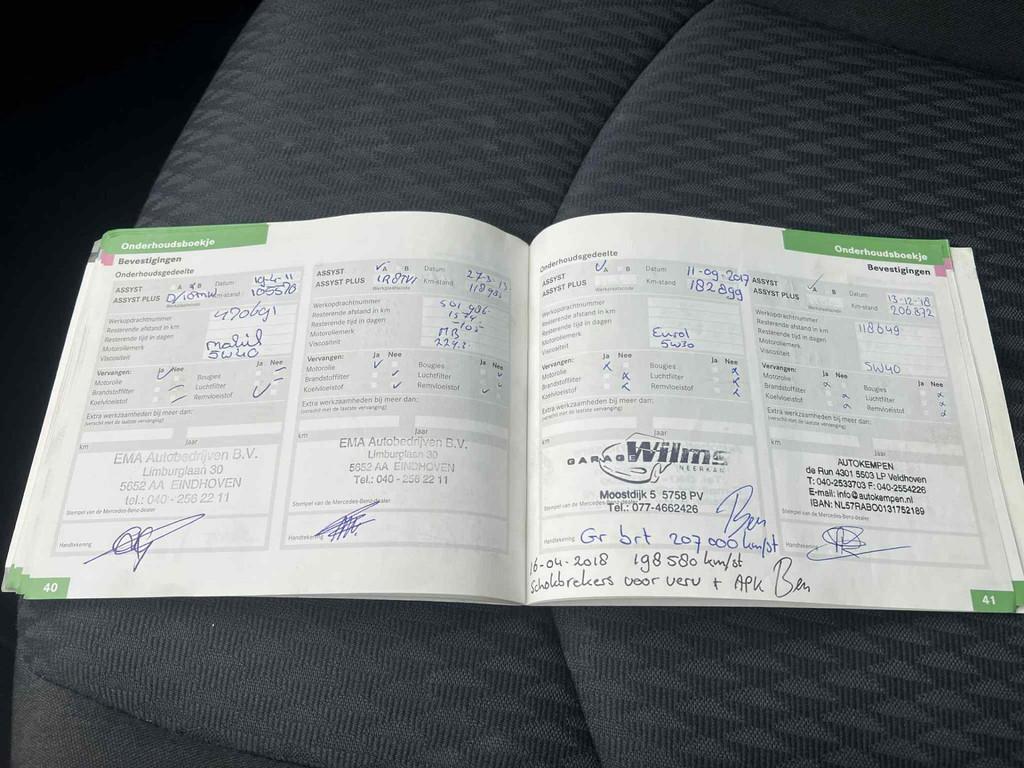 Onderhoudsboekje
Bevestigingen
Onderhoudsgedeelte
ASSYST A B Datum
ASSYST PLUS Km-stand 105570
Werkplaatscode
Werkopdrachtnummer 470691
Resterende afstand in km
Resterende tijd in dagen
Motoroliemerk mobil
Viscositeit 5W40
Vervangen: Ja Nee Ja Nee
Motorolie Bougies
Brandstoffilter Luchtfilter
Koelvloeistof Remvloeistof
Extra werkzaamheden bij meer dan:
(verschil met de laatste vervanging)
km Jaar
EMA Autobedrijven B.V.
Limburglaan 30
5652 AA EINDHOVEN
tel.: 040 - 256 22 11
Stempel van de Mercedes-Benz-dealer
Handtekening
40
ASSYST A B Datum
ASSYST PLUS Km-stand
Werkplaatscode
Werkopdrachtnummer
Resterende afstand in km
Resterende tijd in dagen
Motoroliemerk MB
Viscositeit
Vervangen: Ja Nee Ja Nee
Motorolie Bougies
Brandstoffilter Luchtfilter
Koelvloeistof Remvloeistof
Extra werkzaamheden bij meer dan:
(verschil met de laatste vervanging)
km Jaar
EMA Autobedrijven B.V.
Limburglaan 30
5652 AA EINDHOVEN
Tel.: 040 - 256 22 11
Stempel van de Mercedes-Benz-dealer
Handtekening
Onderhoudsgedeelte
ASSYST A B Datum 11-09-2017
ASSYST PLUS Km-stand 182899
Werkplaatscode
Werkopdrachtnummer
Resterende afstand in km
Resterende tijd in dagen
Motoroliemerk Eurol
Viscositeit 5W30
Vervangen: Ja Nee Ja Nee
Motorolie x Bougies x
Brandstoffilter x Luchtfilter x
Koelvloeistof x Remvloeistof x
Extra werkzaamheden bij meer dan:
(verschil met de laatste vervanging)
km Jaar
GARAGE Wilms
NEERKANT
Moostdijk 5 5758 PV
Tel.: 077-4662426
Stempel van de Mercedes-Benz-dealer
Ben
Handtekening Gr brt 207 000 km/st
16-04-2018 198 580 km/st
Schokbrekers voor verv + APK Ben
Onderhoudsboekje
Bevestigingen
ASSYST A B Datum 13-12-18
ASSYST PLUS Km-stand 206872
Werkplaatscode
Werkopdrachtnummer 118649
Resterende afstand in km
Resterende tijd in dagen
Motoroliemerk
Viscositeit 5W40
Vervangen: Ja Nee Ja Nee
Motorolie x Bougies x
Brandstoffilter Luchtfilter x
Koelvloeistof x Remvloeistof x
Extra werkzaamheden bij meer dan:
(verschil met de laatste vervanging)
km Jaar
AUTOKEMPEN
de Run 4301 5503 LP Veldhoven
T: 040-2533703 F: 040-2554226
E-mail: info@autokempen.nl
IBAN: NL57RABO0131752189
Stempel van de Mercedes-Benz-dealer
Handtekening
41